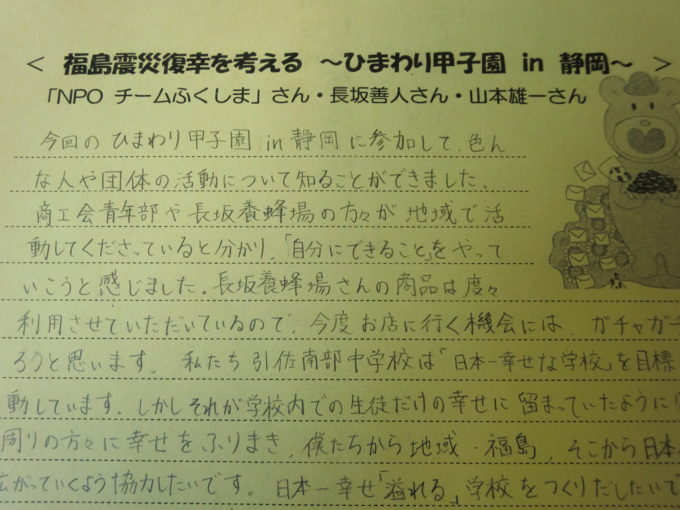 < 福島震災復幸を考える ～ひまわり甲子園 in 静岡～ >
「NPO チームふくしま」さん・長坂善人さん・山本雄一さん
今回のひまわり甲子園in静岡に参加して、色ん
な人や団体の活動について知ることができました。
商工会青年部や長坂養蜂場の方々が地域で活
動してくださっていると分かり、「自分にできること」をやって
いこうと感じました。長坂養蜂場さんの商品は度々
利用させていただいているので、今度お店に行く機会には、ガチャガチ
ろうと思います。私たち引佐南部中学校は「日本一幸せな学校」を目標
動しています。しかしそれが学校内での生徒だけの幸せに留まっていたように
周りの方々に幸せをふりまき、僕たちから地域・福島、そこから日本
広がっていくよう協力したいです。日本一幸せ「溢れる」学校をつくりだしたいで